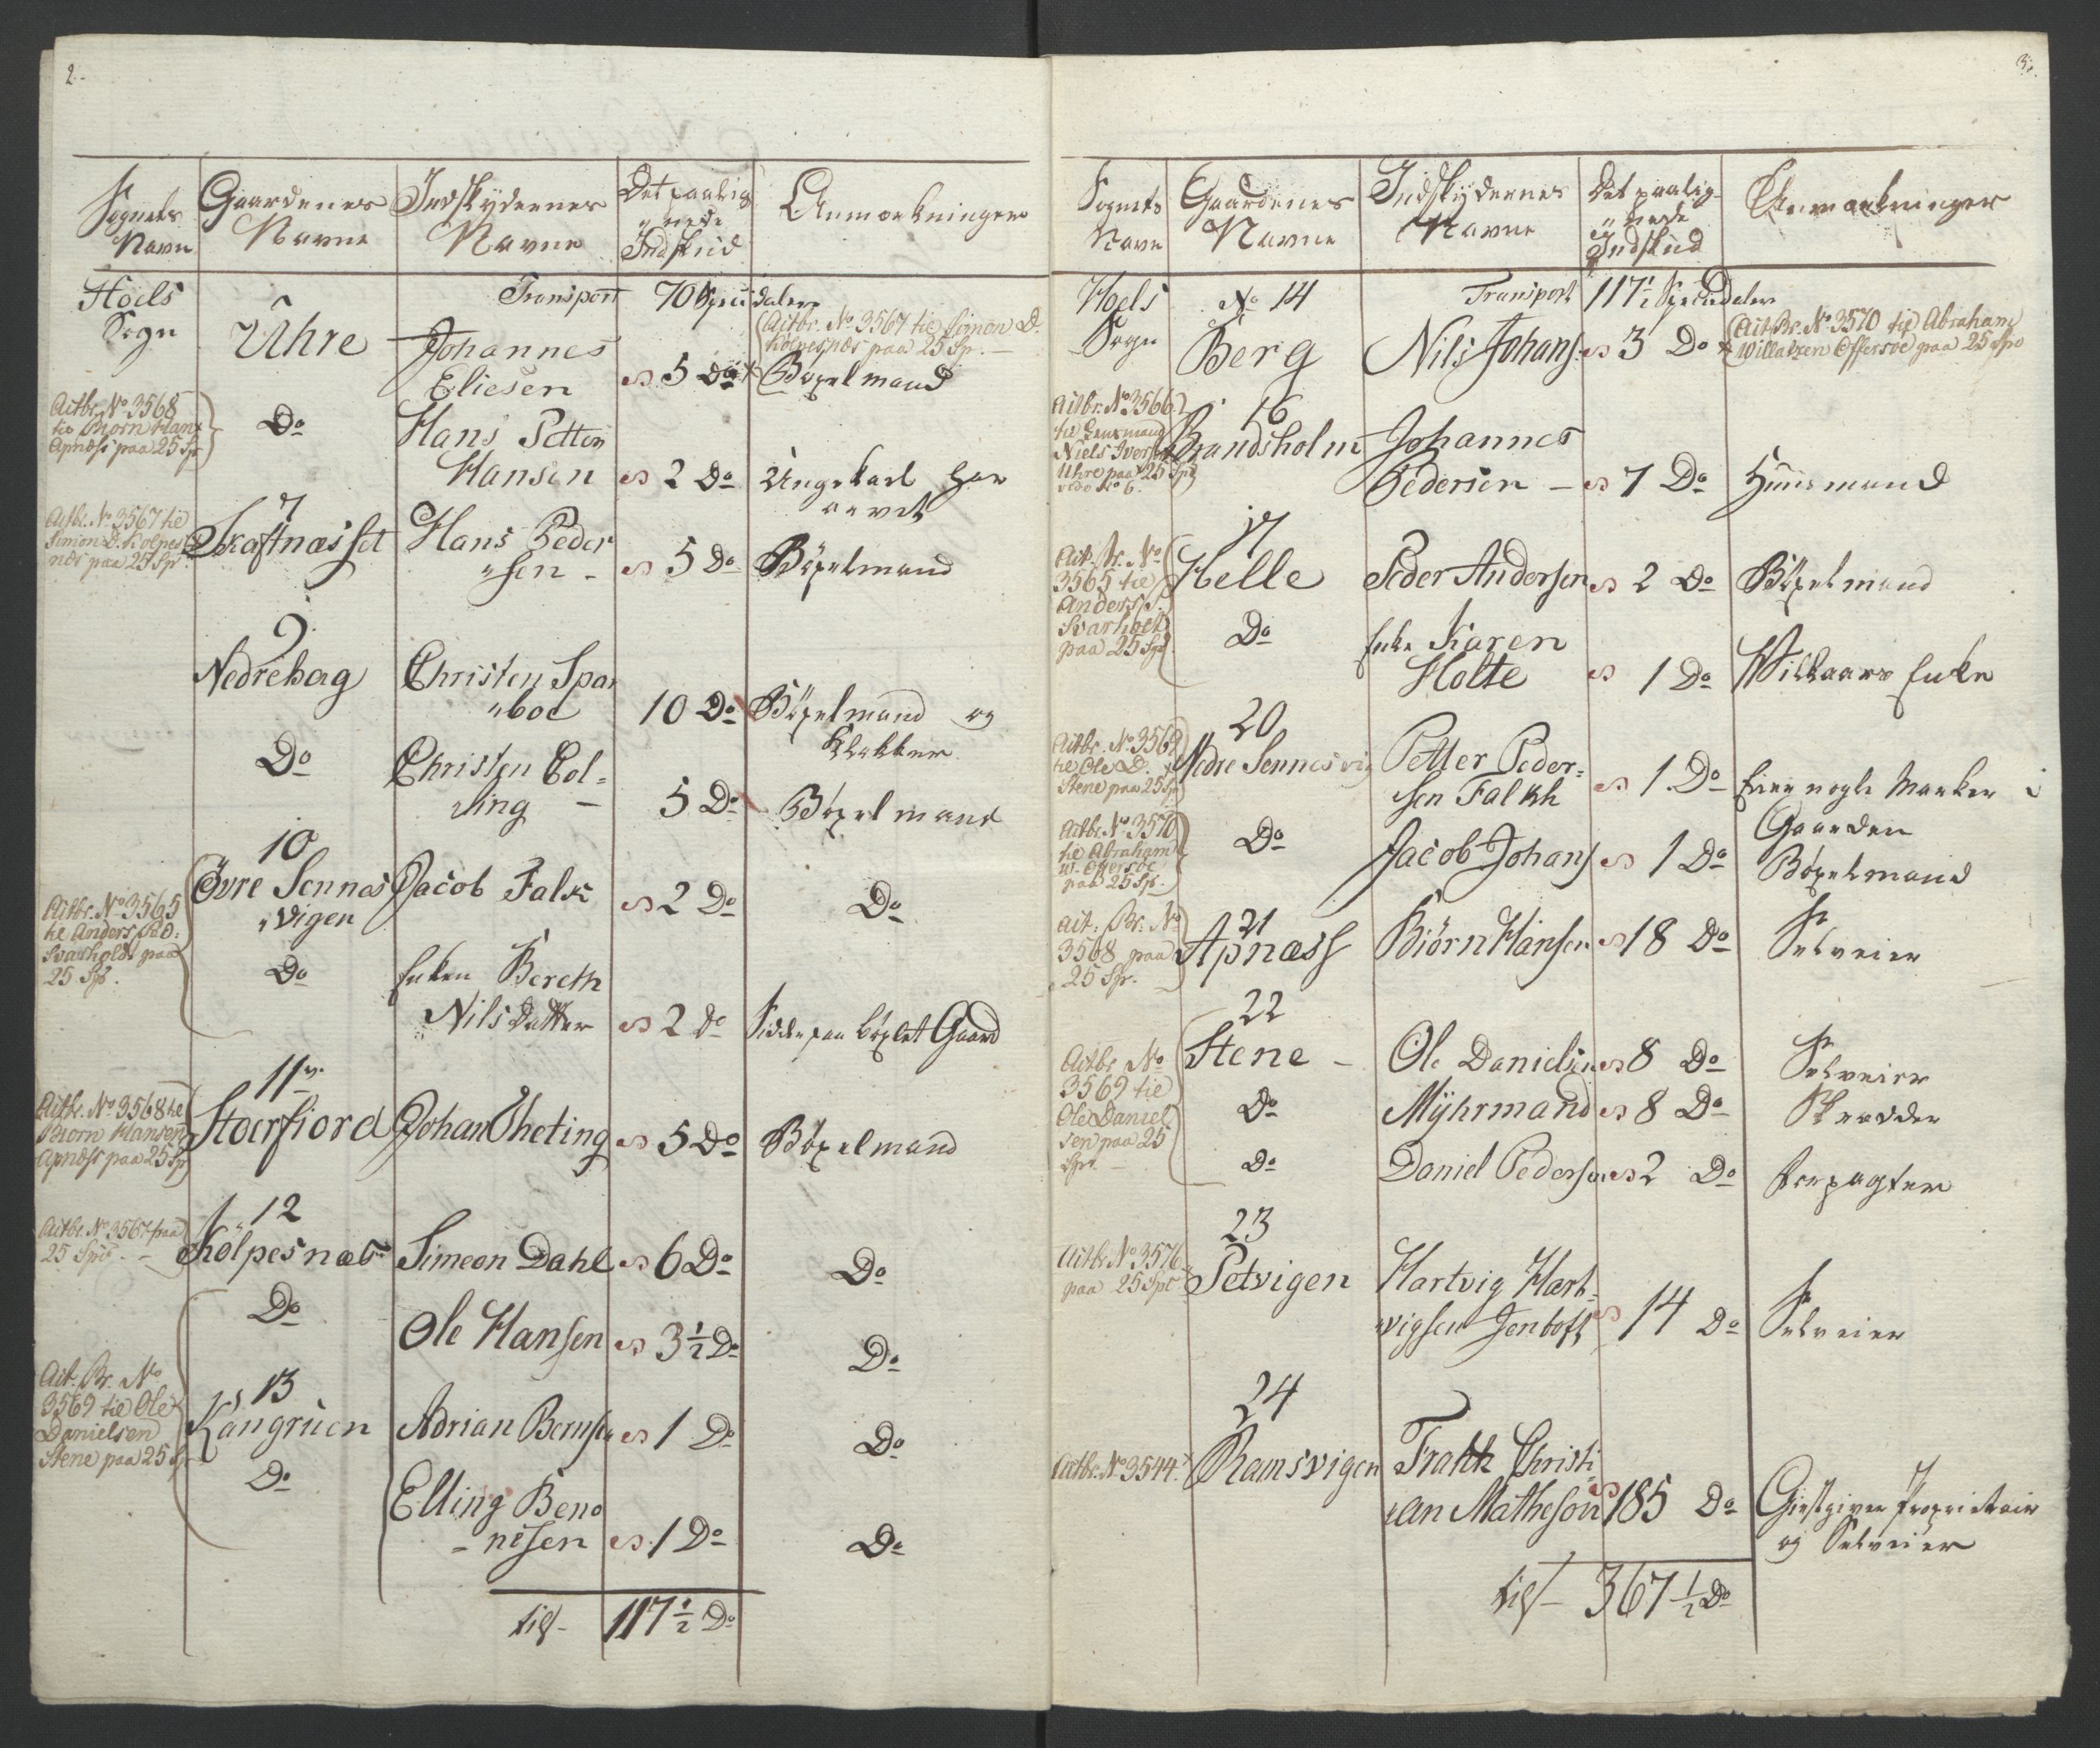 2.
Sognets Gaardenes Indskydernes Det paalig Anmærkninger
Navn Navne Navne "nede
Indskud
Hoels Transport 70 Speciedaler
Sogn Uhre Johannes (Actbr. No 3567 til Simon D.
Kolpesnæs paa 25 Sp. —
Eliesen 5 Do * Böxelmand
Actbr. No 3568
til Biorn Hans
Apnæss paa 25 Sp
Do Hans Petter
Hansen 2 Do Ungekarl har
arvet
7
Actbr. No 3567 til
Simon D. Kolpes
næs paa 25 Sp
Skaftnæsset Hans Peder
"sen - 5 Do Böxelmand
9.
Nedrehag Christen Spar
"boe 10 Do Böxelmand og
Klokker
Do Christen Col=
"ling — 5 Do Böxelmand
10
Actbr. No 3565
til Anders P. D:
Svarholdt paa
25 Sp.
Övre Sennes Jacob Falk 2 Do Do
"vigen
Do Enken Bereth
Nils Datter 2 Do Sidder paa böxlet Gaard
11
Actbr. No 3568 til
Biorn Hansen
Apnæss paa 25 Sp
Stoerfiord Johan Uheting 5 Do Böxelmand
12
Actbr. No 3567 paa
25 Spd. —
Kölpesnæs Simeon Dahl 6 Do Do
Do Ole Hansen 3 1/2 Do Do
13
Act. Br. No
3569 til Ole
Danielsen
Stene paa 25 Sp
Kangruen Adrian Bernsen 1 Do Do
Do Elling Beno
- nisen 1 Do Do
til — 117 1/2 Do
3.
Sognets Gaardenes Indskydernes Det paalig- Anmærkninger
Navn Navne Navne "nede
Indskud
Hoels No 14 Transport 117 1/2 Speciedaler
Sogn Berg Nils Johans 3 Do * (Act Br. No 3570 til Abraham
Willatzen Offersöe paa 25 Spd
16
Actbr. No 3566
til Lensmand
Niels Iversen
Uhre paa 25 Spd
vide No 6.
Brandsholm Johannes
Pedersen — 7 Do Huusmand
17
Act. Br. No
3565 til
Anders P.
Svarholt
paa 25 Spd
Helle Peder Andersen 2 Do Böxelmand
Do Enke Karen
Holte 1 Do Willkaars Enke
20
Actbr. No 3569
til Ole D.
Stene paa 25 Sp
Nedre Sennesvig Petter Peder=
sen Falkh 1 Do Eier nogle Marker i
Gaarden
Actbr. No 3570
til Abraham
W. Offersoe
paa 25 Sp.
Do Jacob Johans 1 Do Böxelmand
21
Act: Br: No
3568 paa
25 Sp.
Apnæss Biörn Hansen 18 Do Selveier
22
Actbr No
3569 til
Ole Daniel
sen paa 25
Spd. —
Stene — Ole Danielsen 8 Do Selveier
Do Mÿhrmand 8 Do Skrædder
Do Daniel Pedersen 2 Do Forpagter
23
Actb. No 3576
paa 25 Spd
Petvigen Hartvig Hart=
vigsen Jentoft 14 Do Selveier
24
Actbr. No 3544.
Ramsvigen Frakk Christi
"an Matheson 185 Do Giestgiver Proprietair
og Selveier
til — 367 1/2 Do